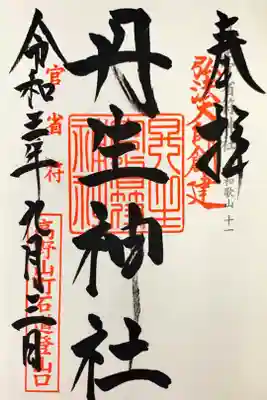 奉拝
弘法大師創建
和歌山 十一
丹生神社
官省符
高野山町石道登山口
令和三年九月三日